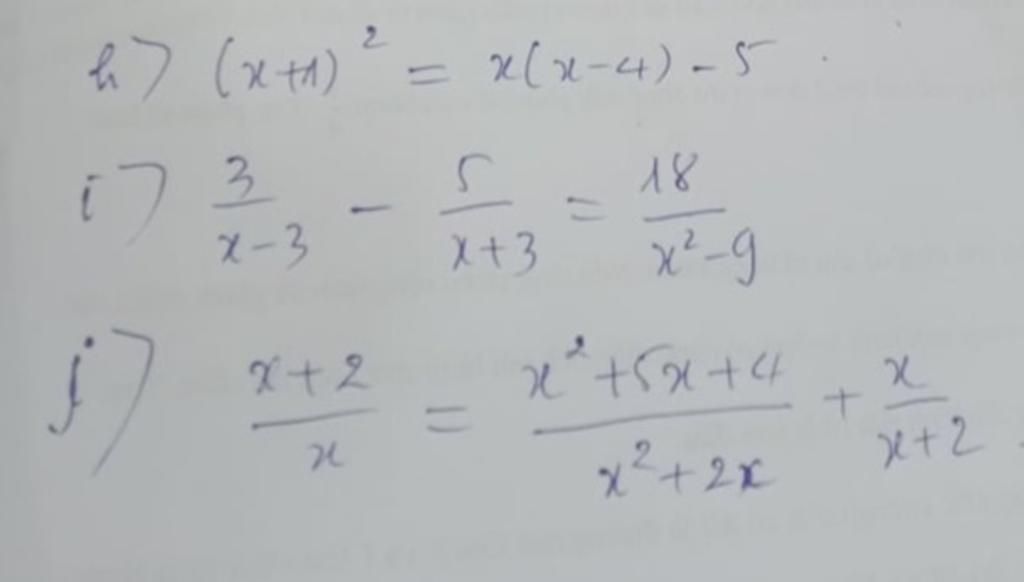 h) (x+1)² = x(x-4) - 5
i) 3/(x-3) - 5/(x+3) = 18/(x²-9)
j) (x+2)/x = (x²+5x+4)/(x²+2x) + x/(x+2)